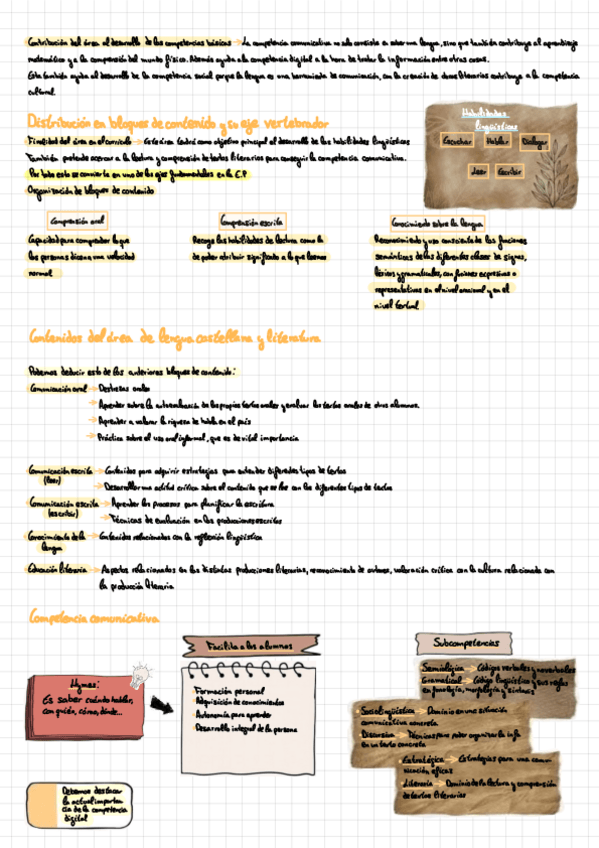 Contribución del área al desarrollo de las competencias básicas → La competencia comunicativa no solo consiste a saber una lengua, sino que también contribuye al aprendizaje
matemático y a la comprensión del mundo físico. Además ayuda a la competencia digital a la hora de tratar la información entre otras cosas.
Esta también ayuda al desarrollo de la competencia social porque la lengua es una herramienta de comunicación, con la creación de obras literarias contribuye a la competencia
cultural.
Distribución en bloques de contenido y su eje vertebrador
Finalidad del área en el currículo → Esta área tendrá como objetivo principal el desarrollo de las habilidades lingüísticas
También pretende acercar a la lectura y comprensión de textos literarios para conseguir la competencia comunicativa.
Por todo esto se convierte en uno de los ejes fundamentales en la E.P
Organización de bloques de contenido
Habilidades
lingüísticas
Escuchar Hablar Dialogar
Leer Escribir
Comprensión oral
Capacidad para comprender lo que
las personas dicen a una velocidad
normal
Comprensión escrita
Recoge las habilidades de lectura como la
de poder atribuir significado a lo que leemos
Conocimiento sobre la lengua
Reconocimiento y uso consciente de las funciones
semánticas de las diferentes clases de signos,
léxicos y gramaticales, con funciones expresivas o
representativas en el nivel oracional y en el
nivel textual
Contenidos del área de lengua castellana y literatura
Podemos deducir esto de los anteriores bloques de contenido:
Comunicación oral → Destrezas orales
→ Aprender sobre la autoevaluación de los propios textos orales y evaluar los textos orales de otros alumnos.
→ Aprender a valorar la riqueza de habla en el país
→ Práctica sobre el uso oral informal, que es de vital importancia
Comunicación escrita → Contenidos para adquirir estrategias para entender diferentes tipos de textos
(leer)
→ Desarrollar una actitud crítica sobre el contenido que se lee con los diferentes tipos de textos
Comunicación escrita → Aprender los procesos para planificar la escritura
(escribir)
→ Técnicas de evaluación en las producciones escritas
Conocimiento de la → Contenidos relacionados con la reflexión lingüística
lengua
Educación literaria → Aspectos relacionados con las distintas producciones literarias, reconocimiento de autores, valoración crítica con la cultura relacionada con
la producción literaria
Competencia comunicativa
Hymes:
Es saber cuándo hablar,
con quién, cómo, dónde...
Facilita a los alumnos
Formación personal
Adquisición de conocimientos
Autonomía para aprender
Desarrollo integral de la persona
Subcompetencias
Semiológica → Códigos verbales y no verbales
Gramatical → Código lingüístico y sus reglas
en fonología, morfología y sintaxis
Sociolingüística → Dominio en una situación
comunicativa concreta
Discursiva → Técnicas para poder organizar la info
en un texto concreto
Estratégica → Estrategias para una comu-
nicación eficaz
Literaria → Dominio de la lectura y comprensión
de textos literarios
Debemos destacar
la actual importan
cia de la competencia
digital